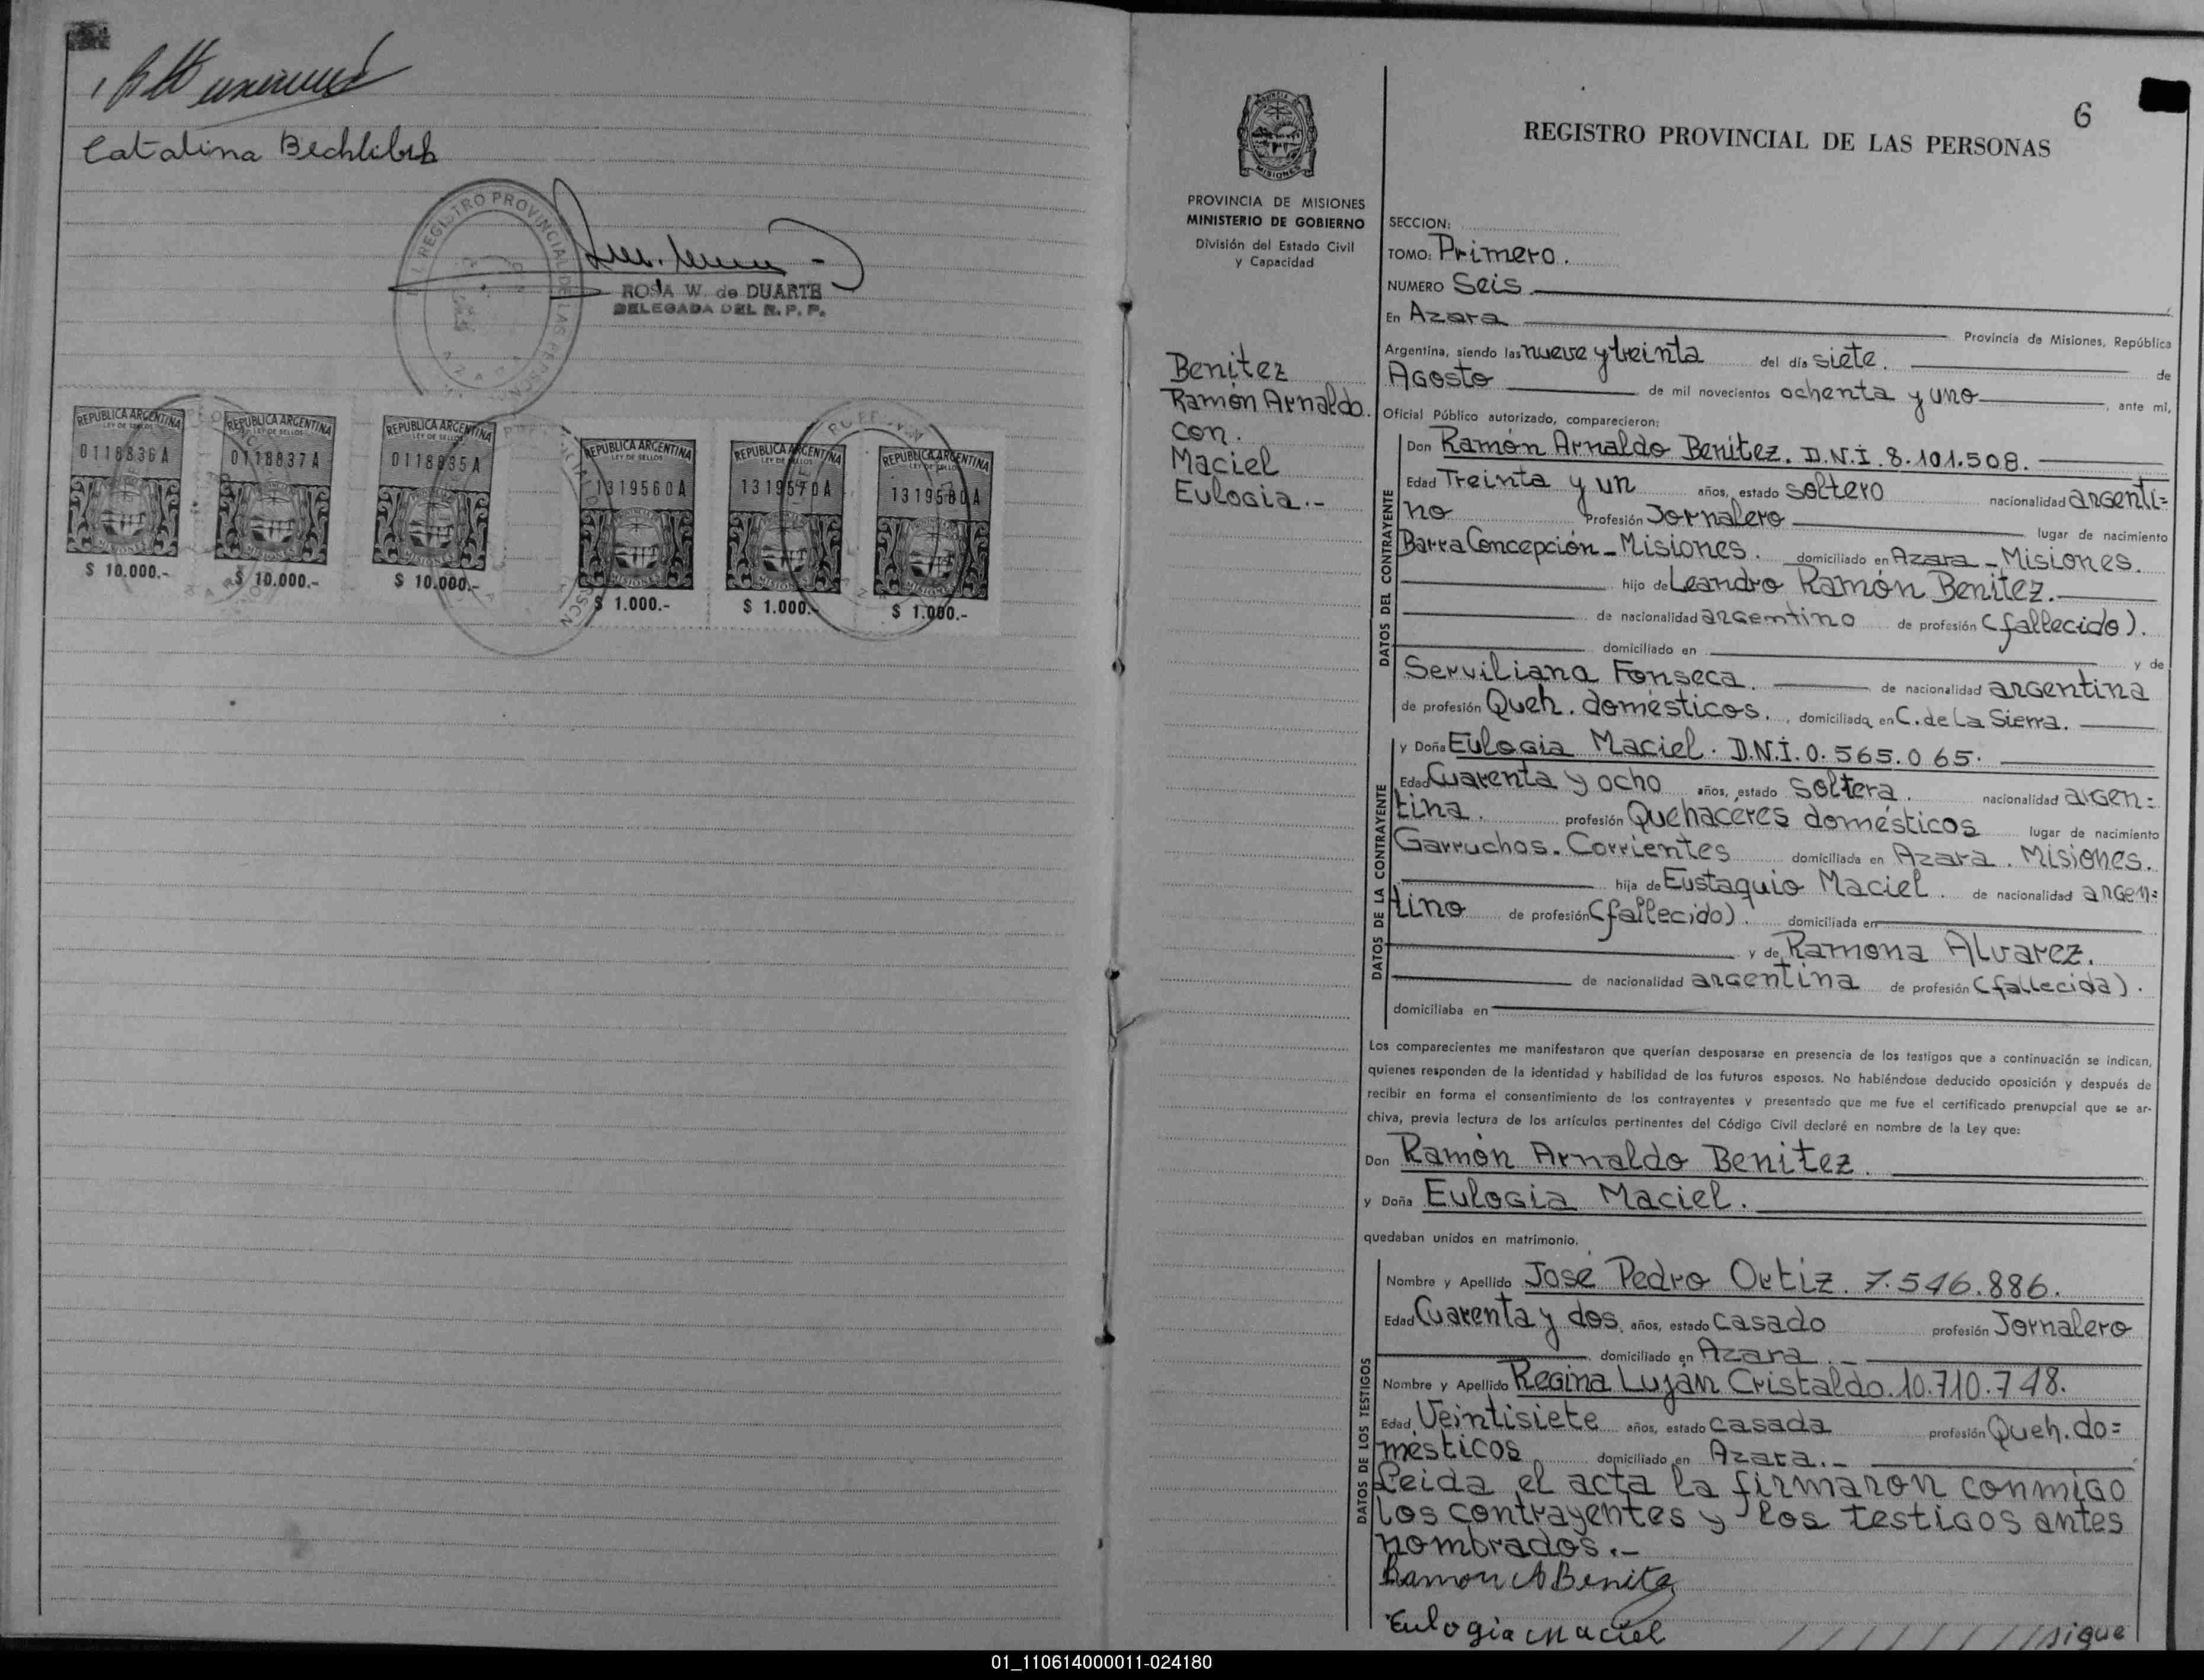 Catalina
REGISTRO PROVINCIAL DE LAS PERSONAS
ROSA W. de DUARTE
DELEGADA DEL R. P. P.
REPUBLICA ARGENTINA
LEY DE SELLOS
0118836A
MISIONES
$ 10.000.-
REPUBLICA ARGENTINA
LEY DE SELLOS
0118837A
MISIONES
$ 10.000.-
REPUBLICA ARGENTINA
LEY DE SELLOS
0118835A
MISIONES
$ 10.000.-
REPUBLICA ARGENTINA
LEY DE SELLOS
1319560A
MISIONES
$ 1.000.-
REPUBLICA ARGENTINA
LEY DE SELLOS
1319570A
MISIONES
$ 1.000.-
REPUBLICA ARGENTINA
LEY DE SELLOS
1319580A
MISIONES
$ 1.000.-
6
PROVINCIA DE MISIONES
MINISTERIO DE GOBIERNO
División del Estado Civil
y Capacidad
Benitez
Ramón Arnaldo.
con.
Maciel
Eulogia.-
REGISTRO PROVINCIAL DE LAS PERSONAS
SECCION:
TOMO: Primero.
NUMERO Seis
En Azara Provincia de Misiones, República
Argentina, siendo las nueve y treinta del día siete. de
Agosto de mil novecientos ochenta y uno, ante mí,
Oficial Público autorizado, comparecieron:
DATOS DEL CONTRAYENTE
Don Ramón Arnaldo Benitez. D.N.I. 8.101.508.
Edad Treinta y un años, estado soltero nacionalidad argenti=
no Profesión Jornalero lugar de nacimiento
Barra Concepción - Misiones. domiciliado en Azara - Misiones.
hijo de Leandro Ramón Benitez.
de nacionalidad argentino de profesión (fallecido).
domiciliado en y de
Serviliana Fonseca. de nacionalidad argentina
de profesión Queh. domésticos., domiciliada en C. de La Sierra.
DATOS DE LA CONTRAYENTE
y Doña Eulogia Maciel. D.N.I. 0.565.065.
Edad Cuarenta y ocho años, estado soltera. nacionalidad argen=
tina. profesión Quehacéres domésticos lugar de nacimiento
Garruchos. Corrientes domiciliada en Azara. Misiones.
hija de Eustaquio Maciel. de nacionalidad argen=
tino de profesión (fallecido). domiciliada en
y de Ramona Alvarez.
de nacionalidad argentina de profesión (fallecida).
domiciliaba en
Los comparecientes me manifestaron que querían desposarse en presencia de los testigos que a continuación se indican,
quienes responden de la identidad y habilidad de los futuros esposos. No habiéndose deducido oposición y después de
recibir en forma el consentimiento de los contrayentes y presentado que me fue el certificado prenupcial que se ar-
chiva, previa lectura de los artículos pertinentes del Código Civil declaré en nombre de la Ley que:
Don Ramón Arnaldo Benitez.
y Doña Eulogia Maciel.
quedaban unidos en matrimonio.
DATOS DE LOS TESTIGOS
Nombre y Apellido José Pedro Ortiz. 7.546.886.
Edad Cuarenta y dos, años, estado casado profesión Jornalero
domiciliado en Azara.-
Nombre y Apellido Regina Luján Cristaldo. 10.710.748.
Edad Veintisiete años, estado casada profesión Queh. do=
mésticos domiciliado en Azara.-
Leida el acta la firmaron conmigo
los contrayentes y los testigos antes
nombrados.-
Ramon A Benitez
Eulogia Maciel
/ / / / / / / / sigue
01_110614000011-024180